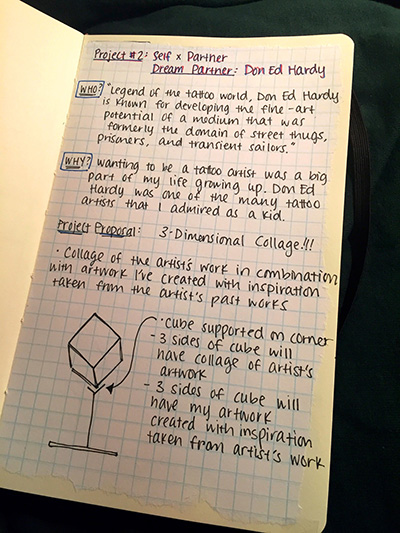 Project #2: Self x Partner
Dream Partner: Don Ed Hardy
WHO? "Legend of the tattoo world, Don Ed Hardy
is known for developing the fine-art
potential of a medium that was
formerly the domain of street thugs,
prisoners, and transient sailors."
WHY? Wanting to be a tattoo artist was a big
part of my life growing up. Don Ed
Hardy was one of the many tattoo
artists that I admired as a kid.
Project Proposal: 3-Dimensional Collage!!!
· Collage of the artist's work in combination
with artwork I've created with inspiration
taken from the artist's past works
· cube supported on corner
- 3 sides of cube will
have collage of artist's
artwork
- 3 sides of cube will
have my artwork
created with inspiration
taken from artist's work